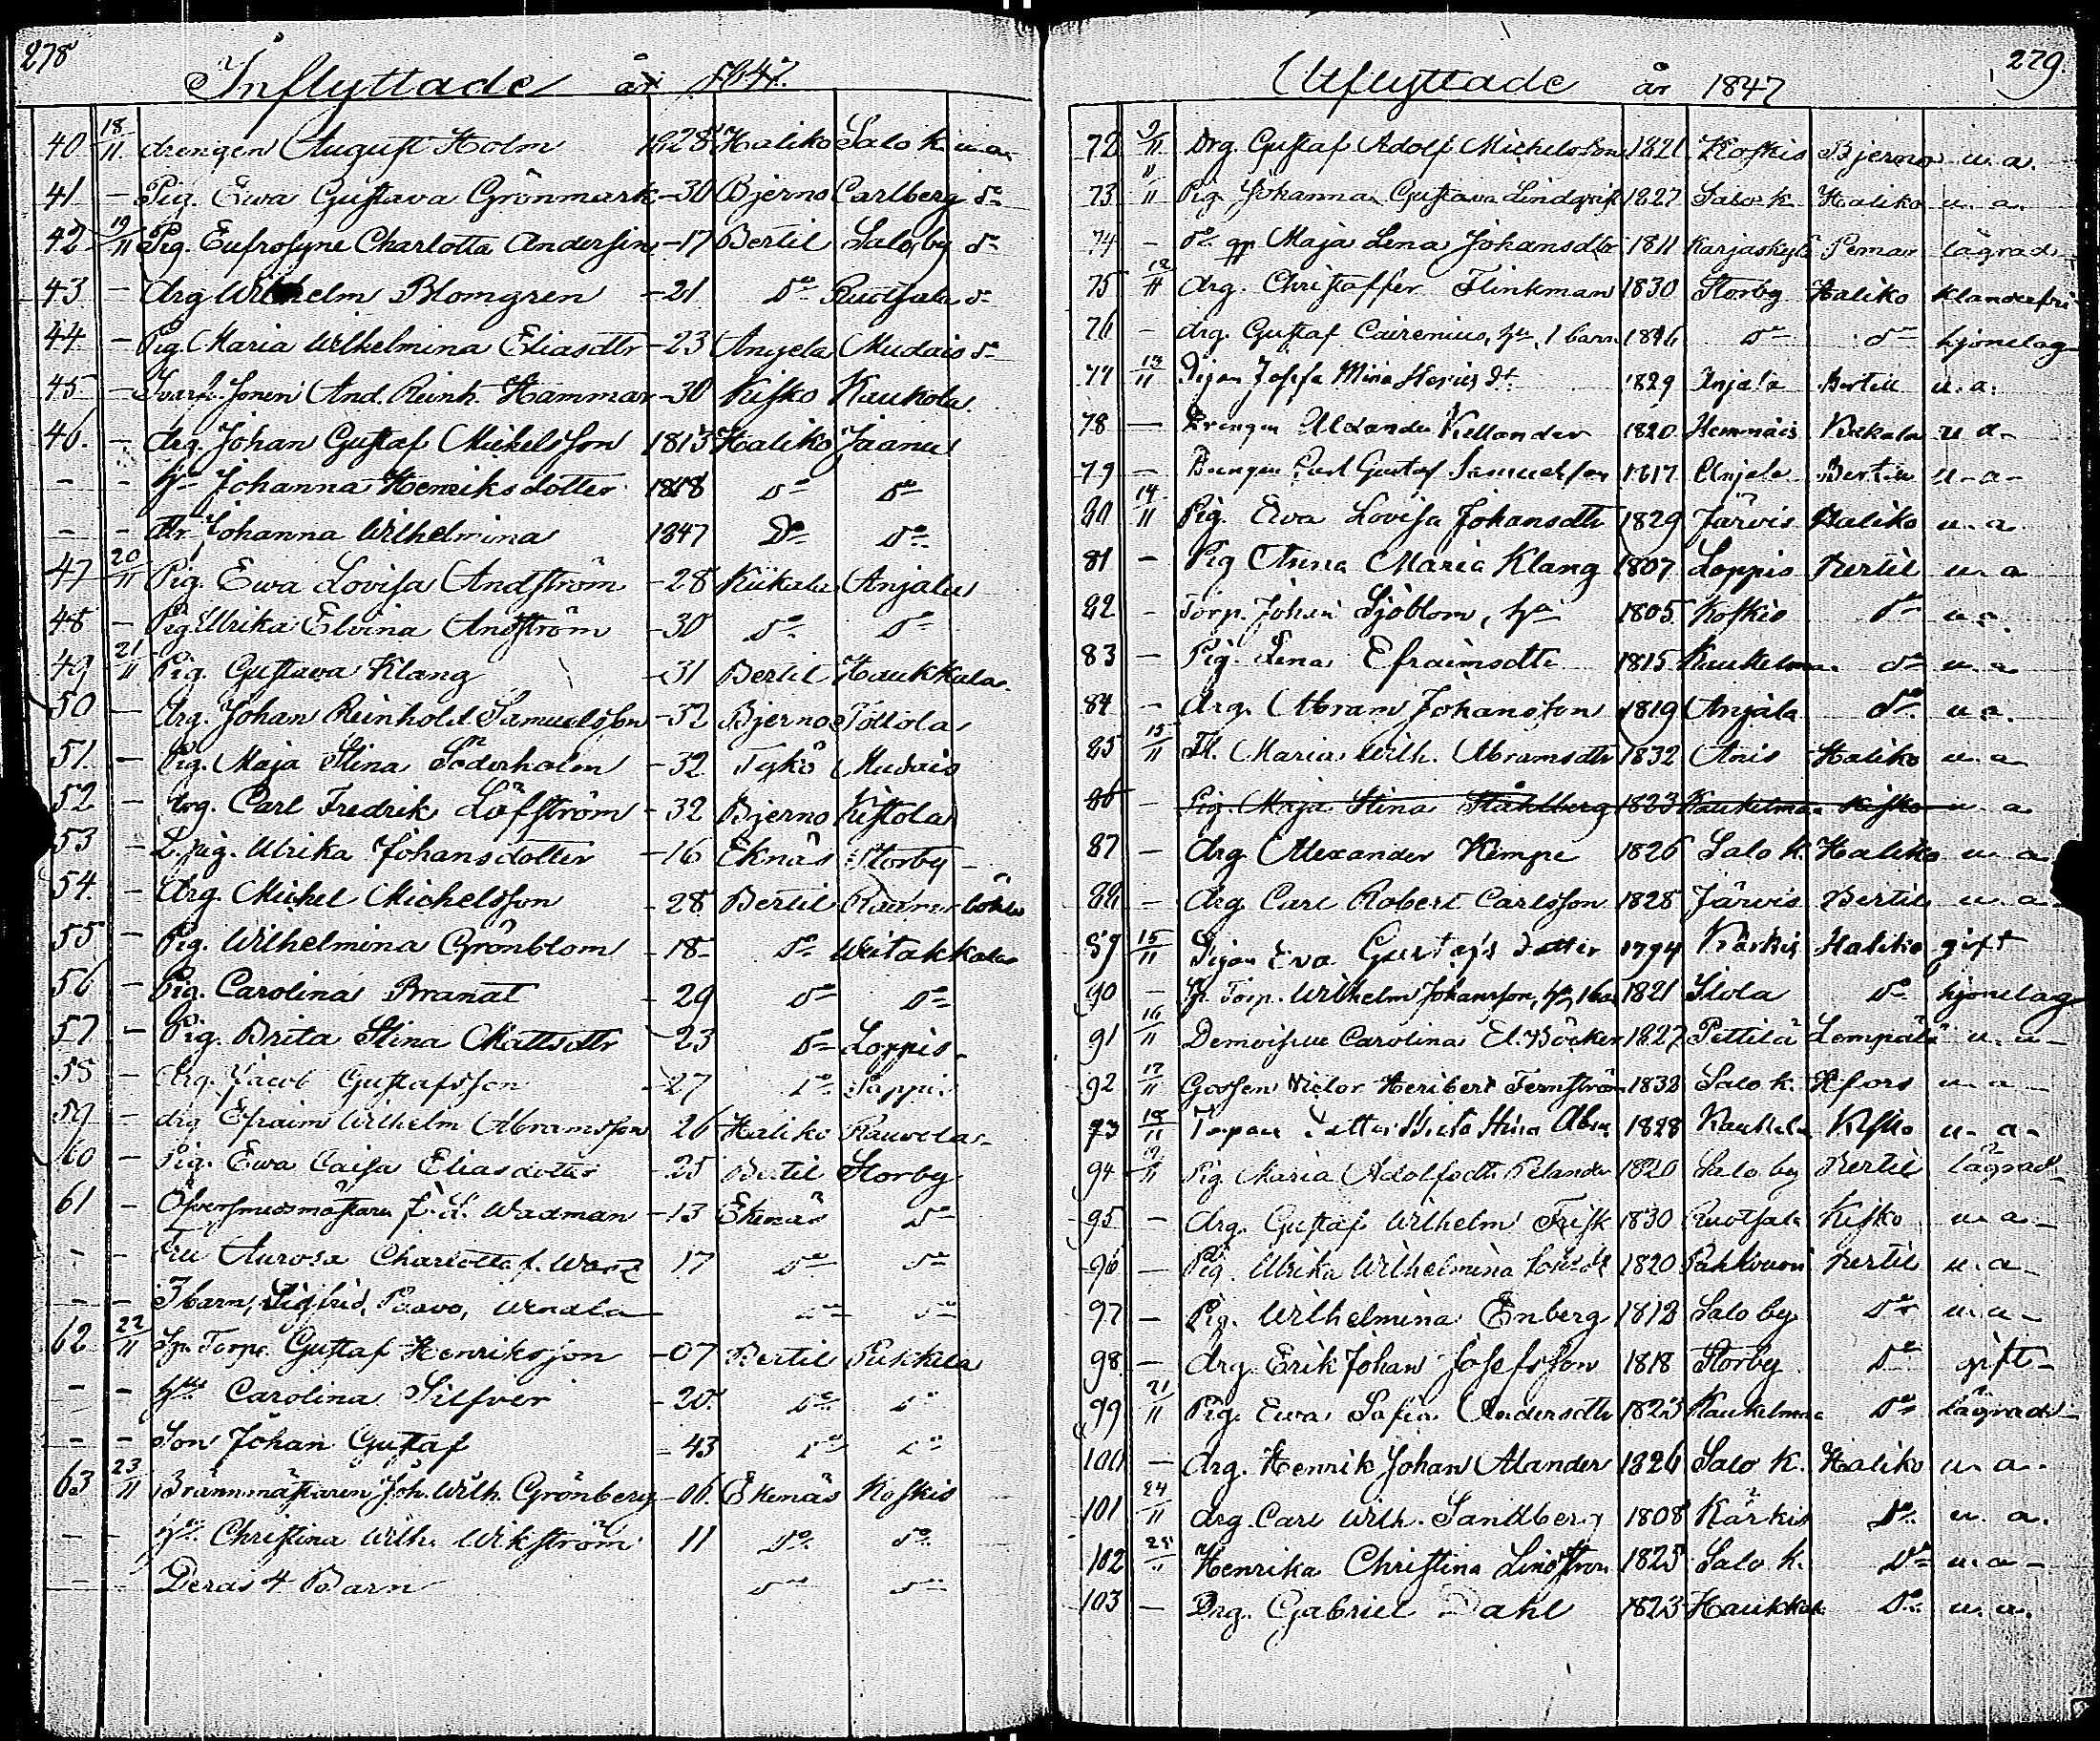 278
Inflyttade år 1847.
40 18/11 drengen August Holm 1828 Haliko Salo k. u.a.
41 – Pig. Ewa Gustava Grönmark -30 Bjerno Carlberg do
42 19/11 Pig. Eufrosyne Charlotta Andersin -17 Bertil Salo by do
43 – drg Wilhelm Blomgren -21 do Ruotsala do
44 – Pig. Maria Wilhelmina Eliasdtr -23 Anjela Mudais do
45 – And. Reinh. Hammar -30 Kisko Kaukola
46. – drg. Johan Gustaf Mickelsson 1813 Haliko Jaanu
- - hu Johanna Henriksdotter 1818 do do
- - dtr Johanna Wilhelmina 1847 Do do
47 20/11 Pig. Ewa Lovisa Andström -28 Kiikala Anjala
48 – Pig. Ulrika Elvina Andström -30 do do
49 21/11 Pig. Gustava Klang -31 Bertil Haukkala
50 – drg. Johan Reinhold Samuelsson -32 Bjerno Tottola
51. – Pig. Maja Stina Söderholm -32 Tykö Mudais
52 – drg. Carl Fredrik Löfström -32 Bjerno Kistola
53 – L. pig. Ulrika Johansdotter -16 Eknäs Storby
54. – drg. Michel Michelsson -28 Bertil
55 – Pig. Wilhelmina Grönblom -18- do Weitakkala
56 – Pig. Carolina Branat -29 do do
57 – Pig. Brita Stina Mattsdtr -23 do Loppis
58 – drg. Jacob Gustafsson -27 do
59 – drg Efraim Wilhelm Abramsson 26 Haliko Rauvola
60 – Pig. Ewa Caisa Eliasdotter -25 Bertil Storby
61 – Öfversmedsmästaren Wadman -13 Ekenäs do
- - Fru Aurora Charlotta f. 17 do do
- - 3 barn, Sigfrid, Paavo, Wendla do do
62 22/11 Sp. Torp. Gustaf Henriksson -07 Bertil Pukkila
- - hu Carolina Silfver -20 do do
- - Son Johan Gustaf -43 do do
63 23/11 Brännmästaren Joh. Wilh. Grönberg -06. Ekenäs Koskis
- - hu Christina Wilh. Wikström 11 do do
- Deras 4 Barn do do
279.
Utflyttade år 1847
72 9/11 Drg. Gustaf Adolf Michelsson 1821 Koskis Bjerno u.a.
73 "/11 Pig. Johanna Gustava Lindqvist 1827 Salo k. Haliko u.a.
74 – do Maja Lena Johansdtr 1811 Karjaskylä Pemar lägrad
75 12/11 drg. Christaffer Flinkman 1830 Storby Haliko klanderfri
76 – drg. Gustaf Cairenius, hu, 1 barn 1816 do do hjonelag
77 13/11 Pigan Josefa Mina 1829 Anjala Bertil u.a.
78 – Drengen Alexander Kellander 1820 u.a-
79 – Drengen Carl Gustaf Samuelsson 1817 Anjela Bertil u-a-
80 14/11 Pig. Ewa Lovisa Johansdtr 1829 Järvis Haliko u.a.
81 – Pig Anna Maria Klang 1807 Loppis Bertil u.a
82 – Torp. Johan Sjöblom, hu 1805 Koskis do u.a.
83 – Pig. Lena Efraimsdtr 1815 Kaukelma do u.a
84 – drg. Abram Johansson 1819 Anjala do u.a.
85 15/11 Maria Wilh. Abramsdtr 1832 Anis Haliko u.a
86 – Pig. Maja Stina Ståhlberg 1823 Kaukelma Kisko u a
87 – drg. Alexander Kempe 1826 Salo k. Haliko u.a
88 – drg. Carl Robert Carlsson 1828 Järvis Bertil u.a
89 15/11 Pigan Eva Gustafs dotter 1794 Kärkis Haliko gift
90 – Sp. Torp. Wilhelm Johansson, hu, 1 barn 1821 do hjonelag
91 16/11 Demoiselle Carolina El. Böcker 1827 Pettilä Lempälä u.a-
92 17/11 Gossen Victor Heribert Fernström 1832 Salo k. Hfors u.a-
93 18/11 dotter Stina 1828 Kaukela Kisko u-a-
94 19/11 Pig. Maria Adolfsdtr 1820 Salo by Bertil lägrad
95 – drg. Gustaf Wilhelm Frisk 1830 Ruotsala Kisko u.a-
96 – Pig. Ulrika Wilhelmina 1820 Pahkvuori Bertil u.a-
97 – Pig. Wilhelmina Enberg 1812 Salo by do u.a-
98 – drg. Erik Johan Josefsson 1818 Storby do gift-
99 21/11 Pig. Ewa Sofia Andersdtr 1823 Kaukelma do lägrad
100 – drg. Henrik Johan Alander 1826 Salo k. Haliko u.a.
101 24/11 drg. Carl Wilh. Sandberg 1808 Kärkis do u.a.
102 25/" Henrika Christina Lindström 1825 Salo k. Do u.a-
103 – Drg. Gabriel Dahl 1823 Haukkala Do u.a.